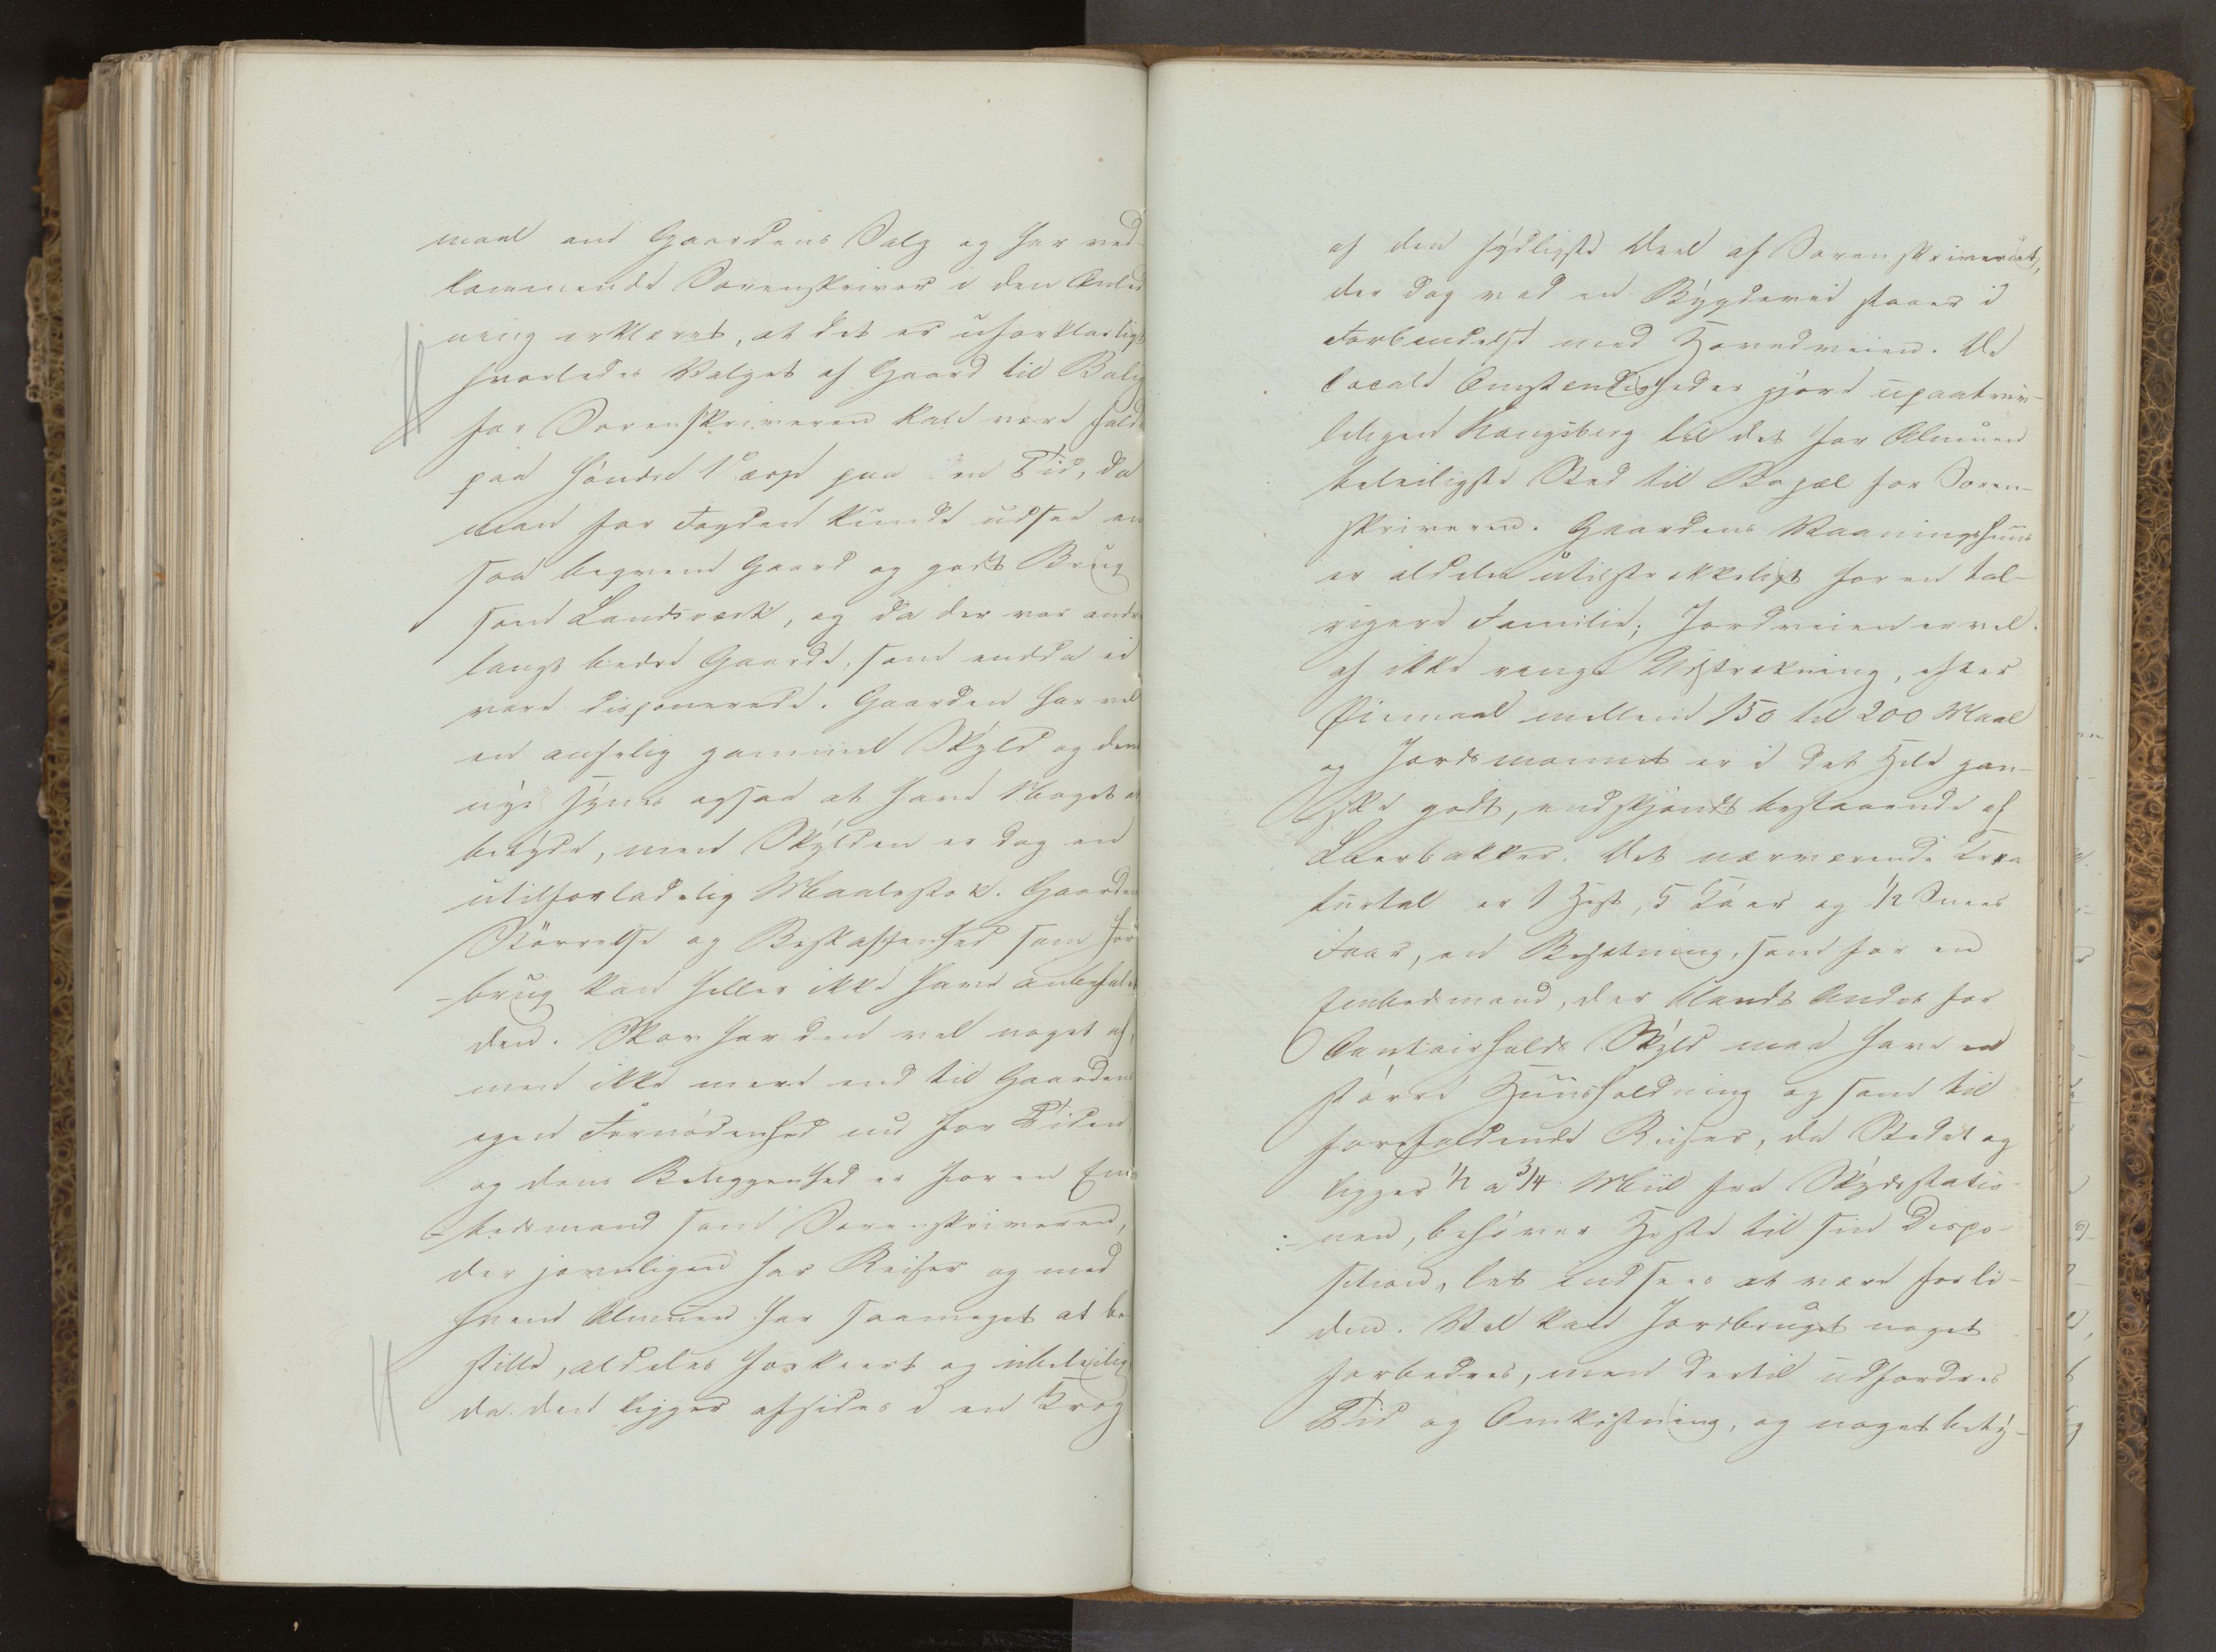 maal om Gaardens Salg og har ved-
kommende Sorenskriver i den Anled
ning erklæret, at det er uforklarligt
hvorledes Valget af Gaard til Bolig
for Sorenskriveren kan være faldt
paa søndre paa en Tid, da
man for Fogden kunde udsee en
saa beqvem Gaard og godt Brug
som Landsværk, og da der var andre
langt bedre Gaarde, som endda ei
vare disponerede. Gaarden har vel
en anselig gammel Skyld og den
nye synes ogsaa at have Meget at
betyde, men Skylden er dog en
utilforladelig Maalestok. Gaardens
Størrelse og Beskaffenhed som Jord
-brug kan heller ikke have anbefalet
den. Skov har den vel noget af,
men ikke mere end til Gaardens
egen Fornødenhed nu for Tiden,
og dens Beliggenhed er for en Em-
bedsmand som Sorenskriveren,
der jævnligen har Reiser og med
hvem Almuen har saameget at be-
stille, aldeles forkeert og ubeleilig
da den ligger afsides i en Krog
af den sydligste Deel af Sorenskriveriet,
der dog ved en Bygdevei staaer i
Forbindelse med Hovedveien. De
locale Omstændigheder gjøre upaatviv-
leligen Kongsberg til det for Almuen
beleiligste Sted til Bopæl for Soren-
skriveren. Gaardens Vaaningshuus
er aldeles utilstrækkeligt for en tal-
rigere Familie; Jordveien er vel
af ikke ringe Udstrækning, efter
Øiemaal mellem 150 til 200 Maal
og Jordsmonnet er i det Hele gan-
ske godt, endskjøndt bestaaende af
Leerbakker. Det nærværende Crea
turtal er 1 Hest, 5 Køer og ½ Snees
Faar, en Besætning, som for en
Embedsmand, der blandt Andet for
Contoirholds Skyld maa have en
større Huusholdning og som til
forefaldende Reiser, da Stedet og
ligger ½ a ¾ Miil fra Skydsstatio-
nen, behøver Heste til sin Dispo-
sition, let indsees at være for li-
den. Vel kan Jordbruget noget
forbedres, men dertil udfordres
Tid og Omkostning, og noget bety-